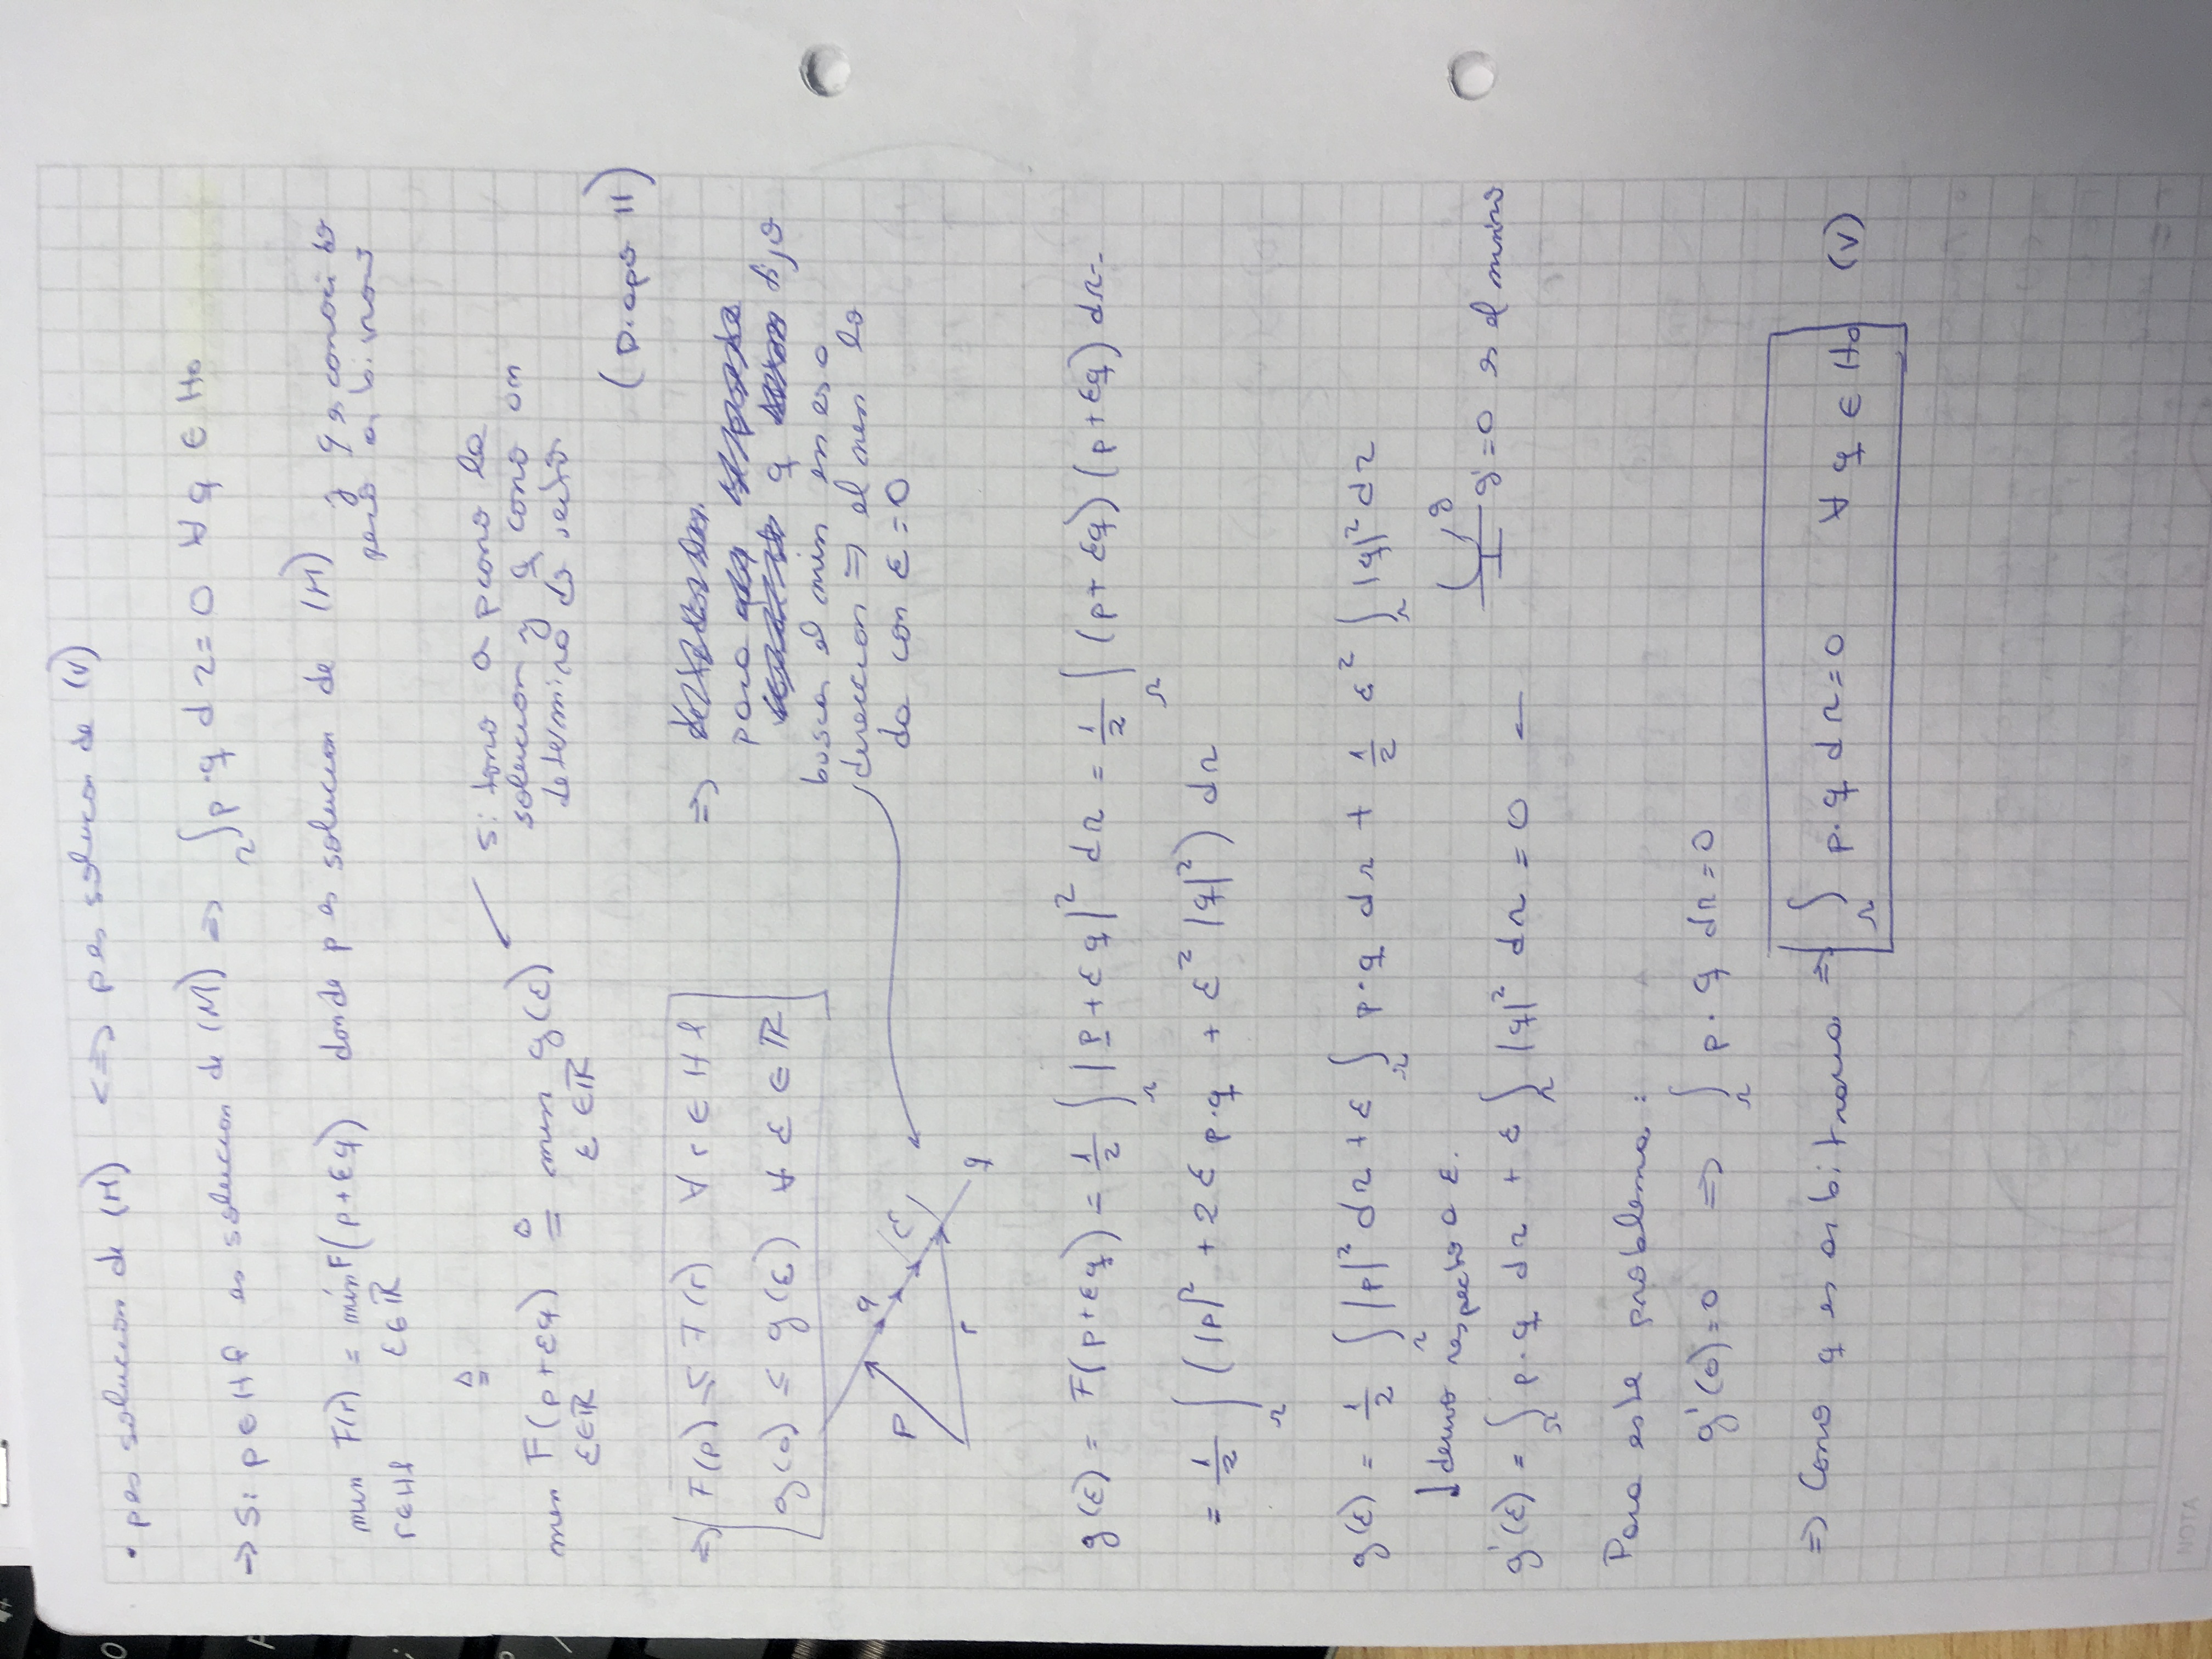 • p es solucion de (M) <=> p es solucion de (V)
→ Si p ∈ Hf es solucion de (M) => ∫Ω p·q dΩ = 0 ∀ q ∈ Ho
min F(r) = min F(p+εq) donde p es solucion de (M) y q es conocido
r∈Hf ε∈ℝ pero arbitrario
≜
min F(p+εq) ≜ min g(ε)
ε∈ℝ ε ∈ℝ
Si tomo a p como la
solucion y q como un
determinado vector
(Diapo 11)
=> F(p) ≤ F(r) ∀ r ∈ Hf
g(0) ≤ g(ε) ∀ ε ∈ ℝ
=>
para
q fijo
buscas el min en esa
direccion => el min lo
da con ε = 0
p q r q
g(ε) = F(p+εq) = 1/2 ∫Ω |p+εq|² dΩ = 1/2 ∫Ω (p+εq)(p+εq) dΩ =
= 1/2 ∫Ω (|p|² + 2ε p·q + ε² |q|²) dΩ
g(ε) = 1/2 ∫Ω |p|² dΩ + ε ∫Ω p·q dΩ + 1/2 ε² ∫Ω |q|² dΩ
↓ derivo respecto a ε.
g
g'(ε) = ∫Ω p·q dΩ + ε ∫Ω |q|² dΩ = 0 — g'=0 es el minimo
Para este problema:
g'(0)=0 => ∫Ω p·q dΩ=0
=> Como q es arbitraria => ∫Ω p·q dΩ=0 ∀ q ∈ Ho (V)
NOTA